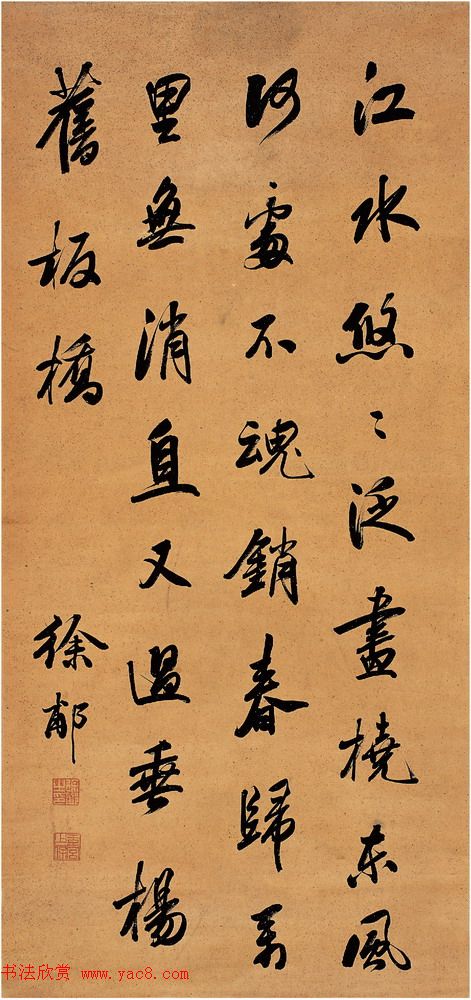 江水悠〻泛畫橈東風
何處不魂銷春歸萬
里無消息又過垂楊
舊板橋
徐郙
书法欣赏 www.yac8.com